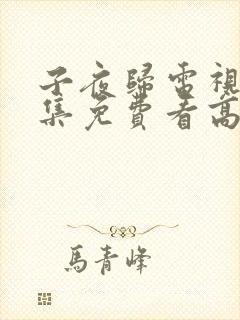 子夜歸電視
集免費看高
馬青峰